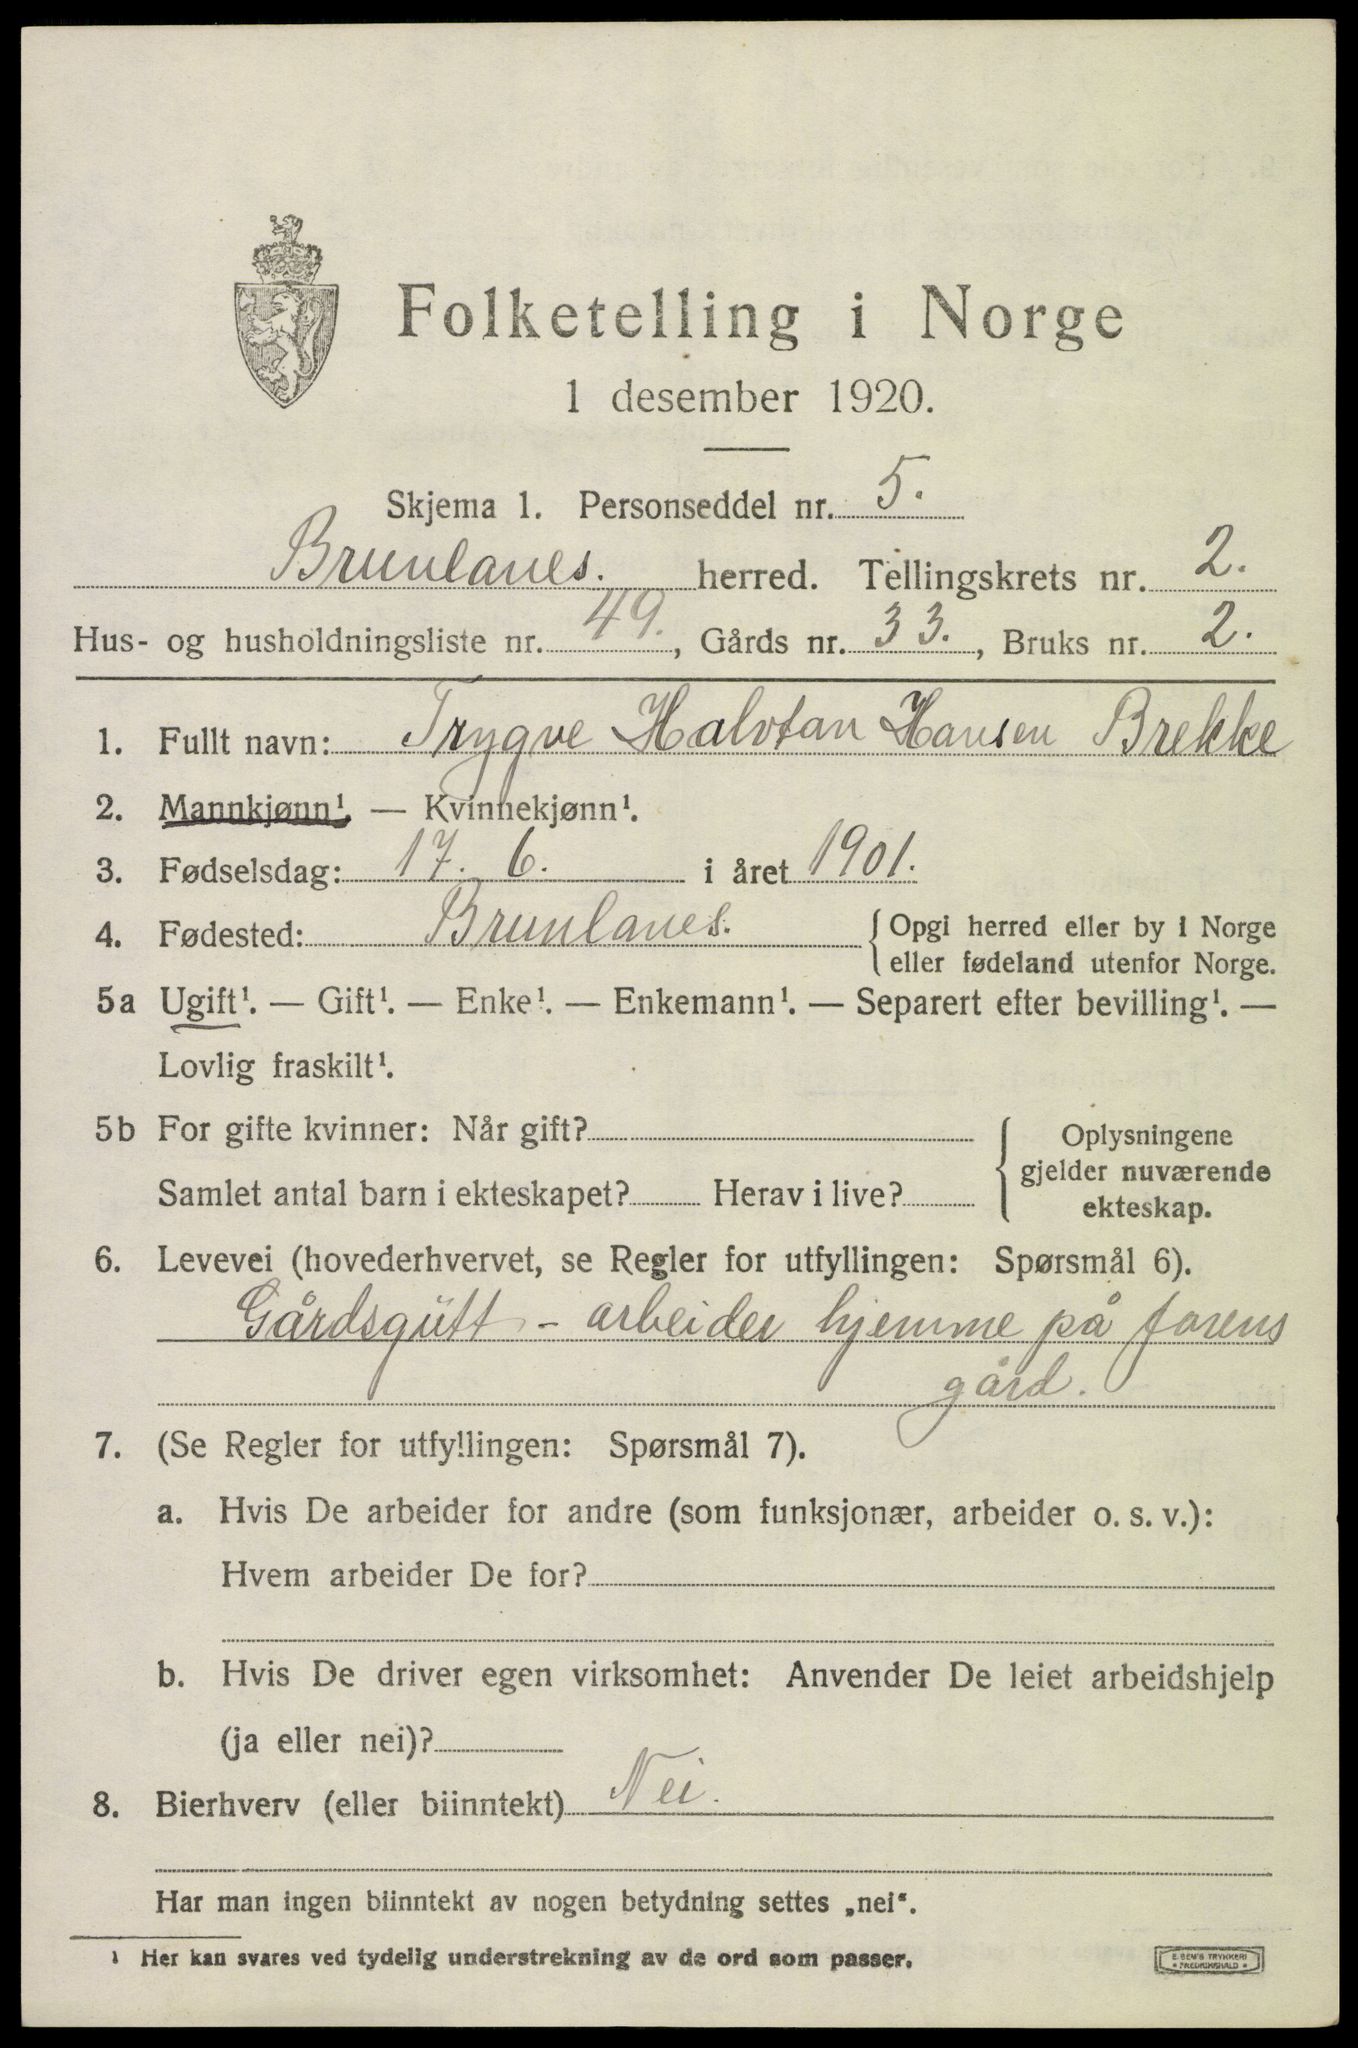 Folketelling i Norge
1 desember 1920.
Skjema 1. Personseddel nr. 5.
Brunlanes. herred. Tellingskrets nr. 2.
Hus- og husholdningsliste nr. 49., Gårds nr. 33., Bruks nr. 2.
1. Fullt navn: Trygve Halvtan Hansen Brekke
2. Mannkjønn¹. — Kvinnekjønn¹.
3. Fødselsdag: 17. 6. i året 1901.
4. Fødested: Brunlanes. { Opgi herred eller by i Norge
eller fødeland utenfor Norge.
5a Ugift¹. — Gift¹. — Enke¹. — Enkemann¹. — Separert efter bevilling¹. —
Lovlig fraskilt¹.
5b For gifte kvinner: Når gift? { Oplysningene
gjelder nuværende
Samlet antal barn i ekteskapet? Herav i live? ekteskap.
6. Levevei (hovederhvervet, se Regler for utfyllingen: Spørsmål 6).
Gårdsgütt - arbeider hjemme på farens
gård.
7. (Se Regler for utfyllingen: Spørsmål 7).
a. Hvis De arbeider for andre (som funksjonær, arbeider o. s. v.):
Hvem arbeider De for?
b. Hvis De driver egen virksomhet: Anvender De leiet arbeidshjelp
(ja eller nei)?
8. Bierhverv (eller biinntekt) Nei.
Har man ingen biinntekt av nogen betydning settes „nei“.
¹ Her kan svares ved tydelig understrekning av de ord som passer.
E. SEM'S TRYKKERI
* FREDRIKSHALD *